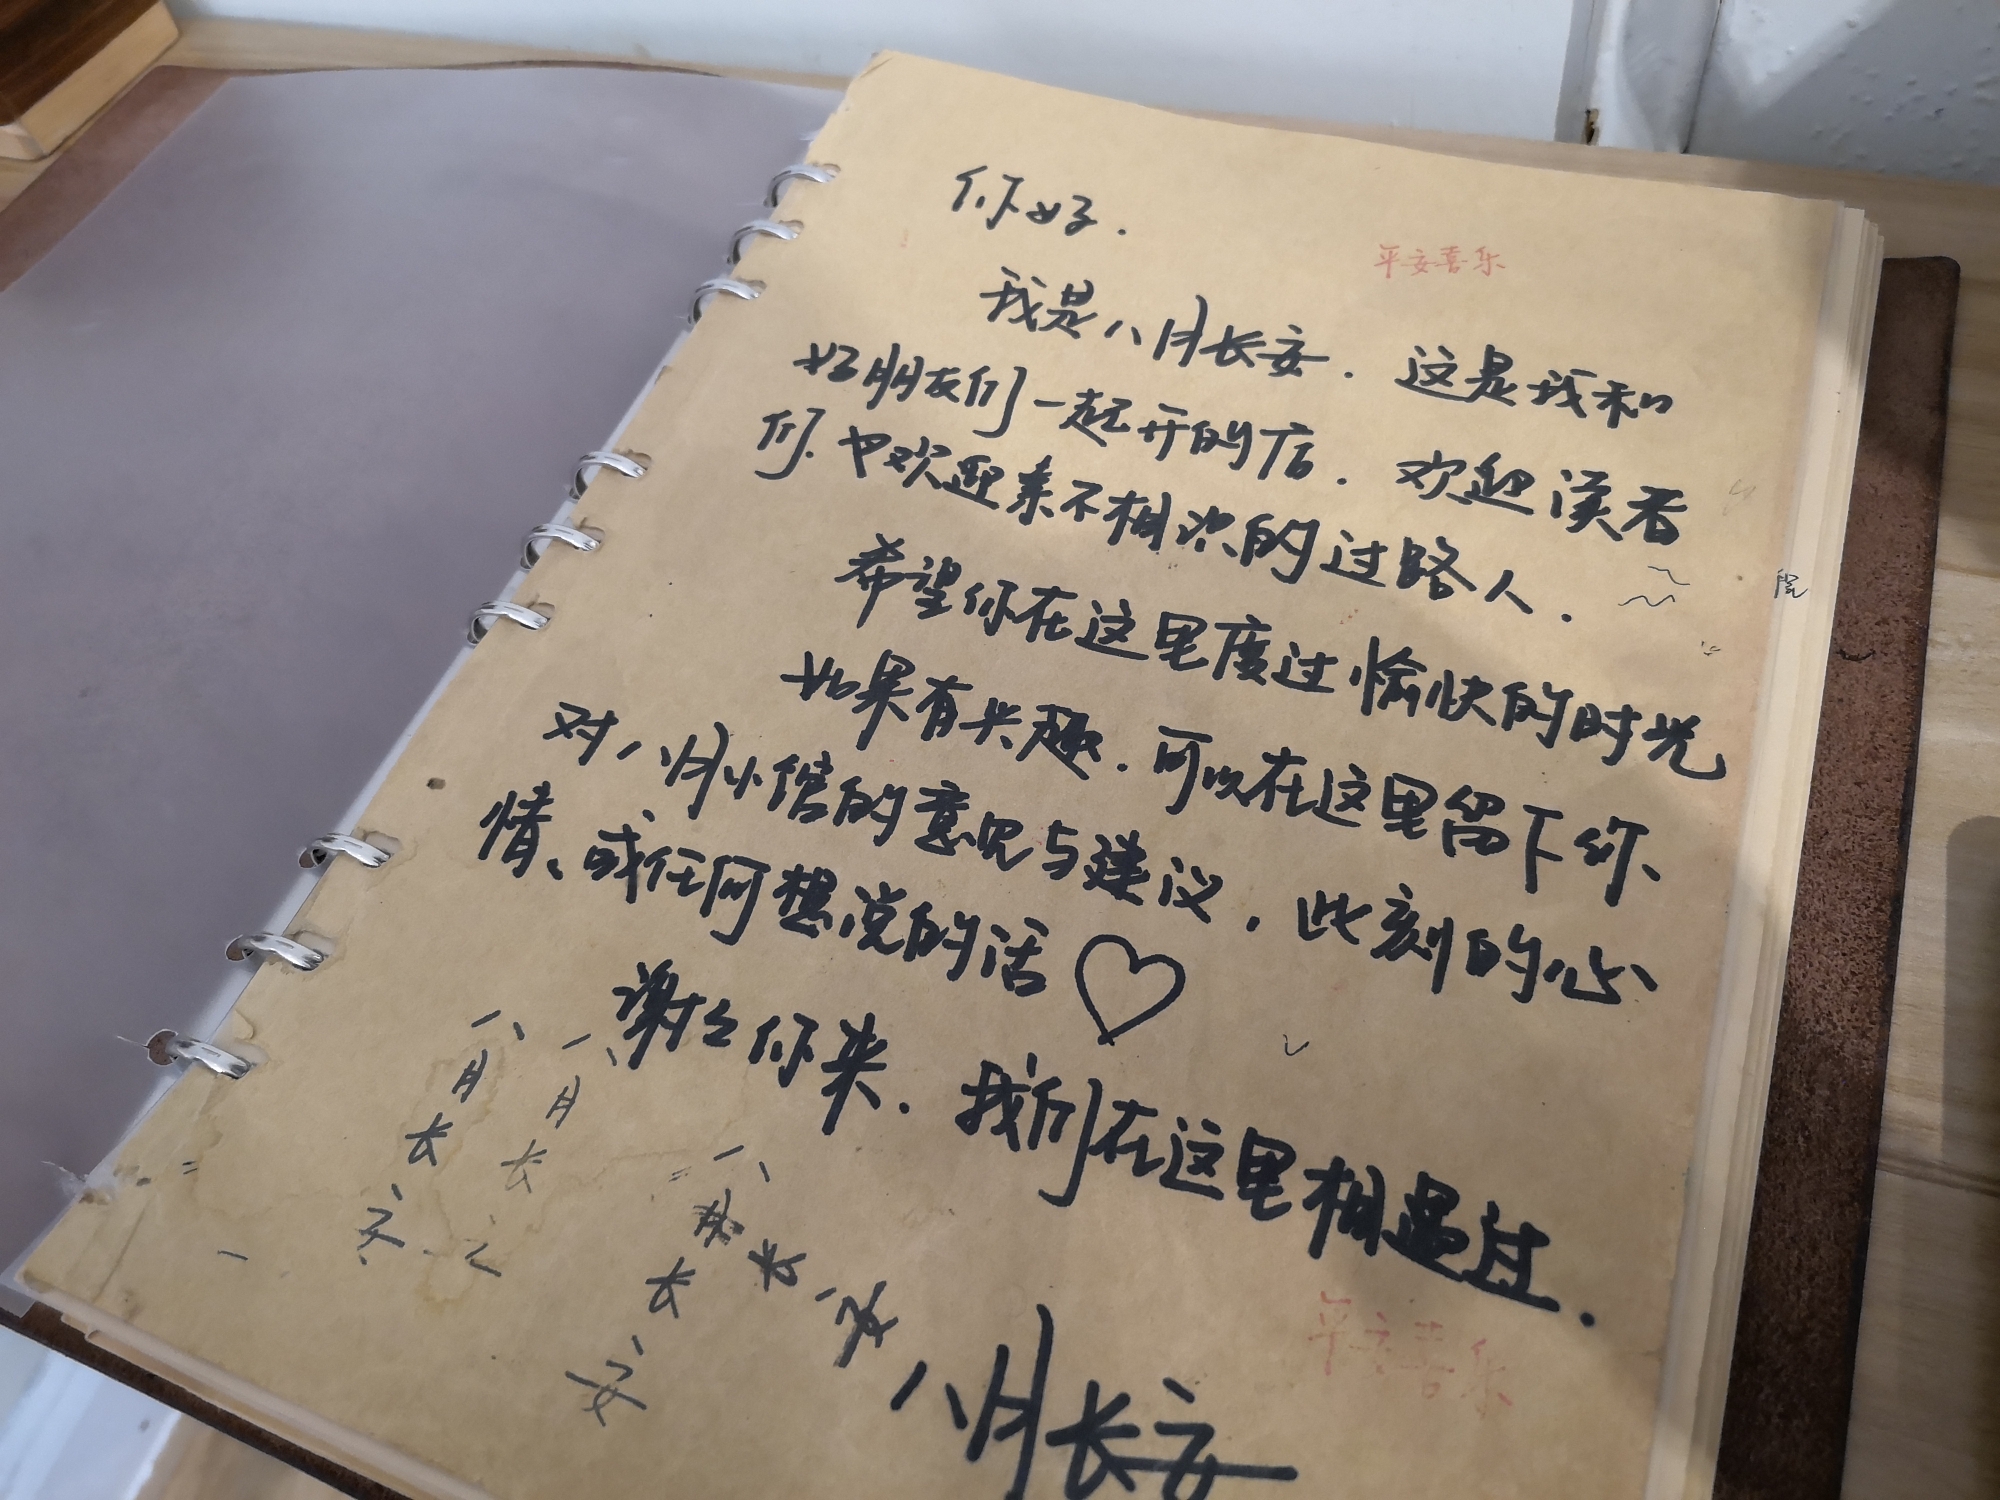 你好.
平安喜乐
我是八月长安. 这是我和
好朋友们一起开的店. 欢迎读者
们. 也欢迎素不相识的过路人.
希望你在这里度过愉快的时光
如果有兴趣. 可以在这里留下你
对八月小馆的意见与建议, 此刻的心
情、或任何想说的话
谢谢你来. 我们在这里相遇过.
八月长安
八月长
八月长安
八月长安
平安喜乐
八月长安